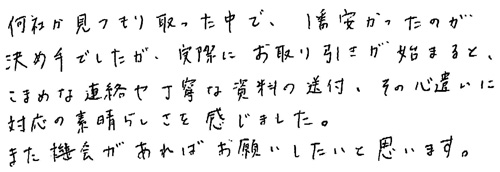 何社か見つもり取った中で、1番安かったのが
決め手でしたが、実際にお取り引きが始まると、
こまめな連絡や丁寧な資料の送付、その心遣いに
対応の素晴らしさを感じました。
また機会があればお願いしたいと思います。